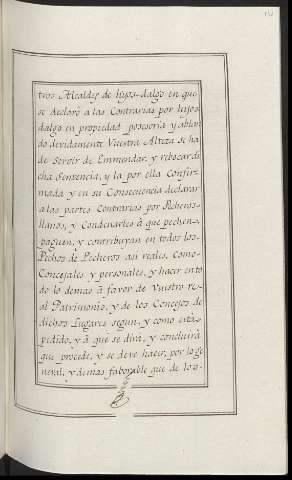 tros Alcaldes de hijos-dalgo en que
se declaró a las Contrarias por hijos
dalgo en propiedad posesoria y ablan
do devidamente Vuestra Alteza se ha
de Servir de Enmendar, y rebocar di
cha Sentencia, y la por ella Confir
mada y en su Consecuencia declarar
a las partes Contrarias por Pecheros
llanos, y Condenarles à que pechen,
paguen, y contribuyan en todos los
Pechos de Pecheros asi reales, como
Concejales y personales, y hacer en to
do lo demas à favor de Vuestro re
al Patrimonio, y de los Concejos de
dichos Lugares segun, y como està
pedido, y à que se dirà, y concluirà
que procede, y se deve hacer, por lo ge
neral, y demas faborable que de los